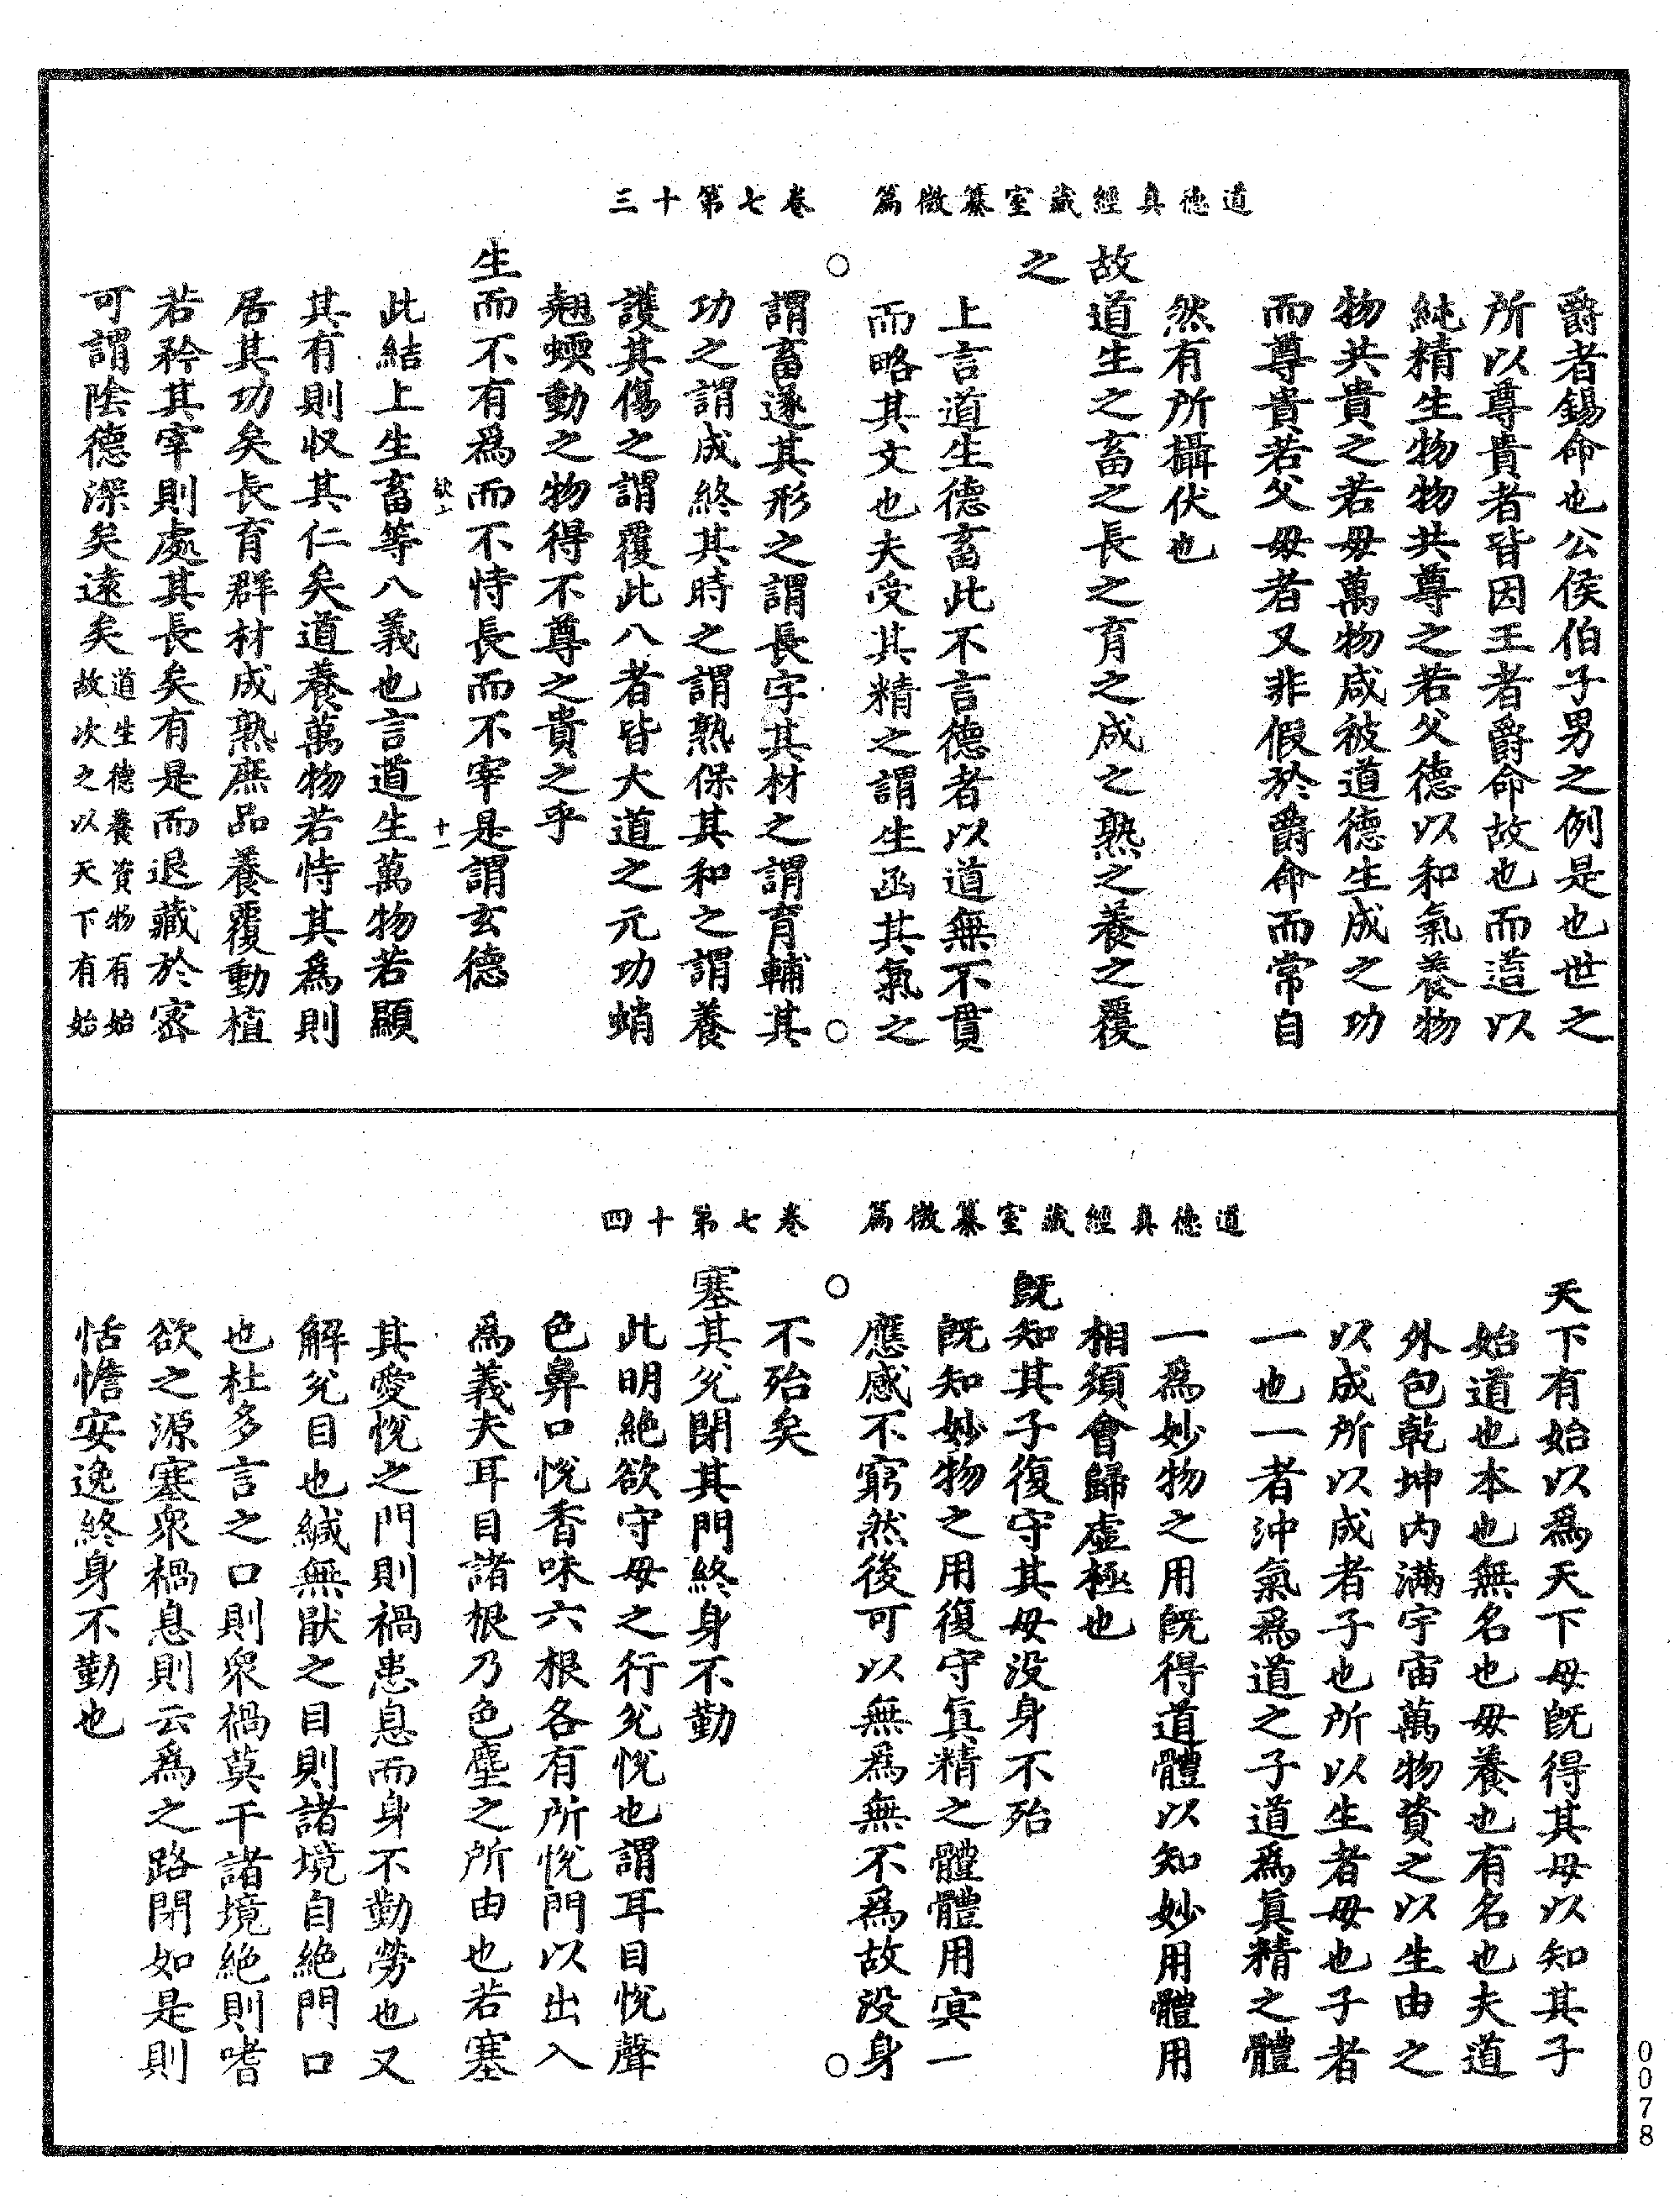 道德真經藏室纂微篇　卷七第十三
爵者錫命也公侯伯子男之例是也世之
所以尊貴者皆因王者爵命故也而道以
純精生物物共尊之若父德以和氣養物
物共貴之若母萬物咸被道德生成之功
而尊貴若父母者又非假於爵命而常自
然有所攝伏也
故道生之畜之長之育之成之熟之養之覆
之
上言道生德畜此不言德者以道無不貫
而略其文也夫受其精之謂生函其氣之
謂畜遂其形之謂長字其材之謂育輔其
功之謂成終其時之謂熟保其和之謂養
護其傷之謂覆此八者皆大道之元功蛸
翹蝡動之物得不尊之貴之乎
生而不有爲而不恃長而不宰是謂玄德
欲二　十一
此結上生畜等八義也言道生萬物若顯
其有則収其仁矣道養萬物若恃其爲則
居其功矣長育群材成熟庶品養覆動植
若矜其宰則處其長矣有是而退藏於密
可謂陰德深矣遠矣道生德養資物有始
故次之以天下有始
道德真經藏室纂微篇　卷七第十四
天下有始以爲天下母既得其母以知其子
始道也本也無名也母養也有名也夫道
外包乾坤内滿宇宙萬物資之以生由之
以成所以成者子也所以生者母也子者
一也一者沖氣爲道之子道爲眞精之體
一爲妙物之用既得道體以知妙用體用
相須會歸虛極也
既知其子復守其母没身不殆
既知妙物之用復守眞精之體體用㝠一
應感不窮然後可以無爲無不爲故没身
不殆矣
塞其兊閉其門終身不勤
此明絶欲守母之行兊悅也謂耳目悅聲
色鼻口悅香味六根各有所悅門以出入
爲義夫耳目諸根乃色塵之所由也若塞
其愛悅之門則禍患息而身不勤勞也又
解兊目也緘無猒之目則諸境自絶門口
也杜多言之口則衆禍莫干諸境絶則嗜
欲之源塞衆禍息則云爲之路閉如是則
恬憺安逸終身不勤也
0078